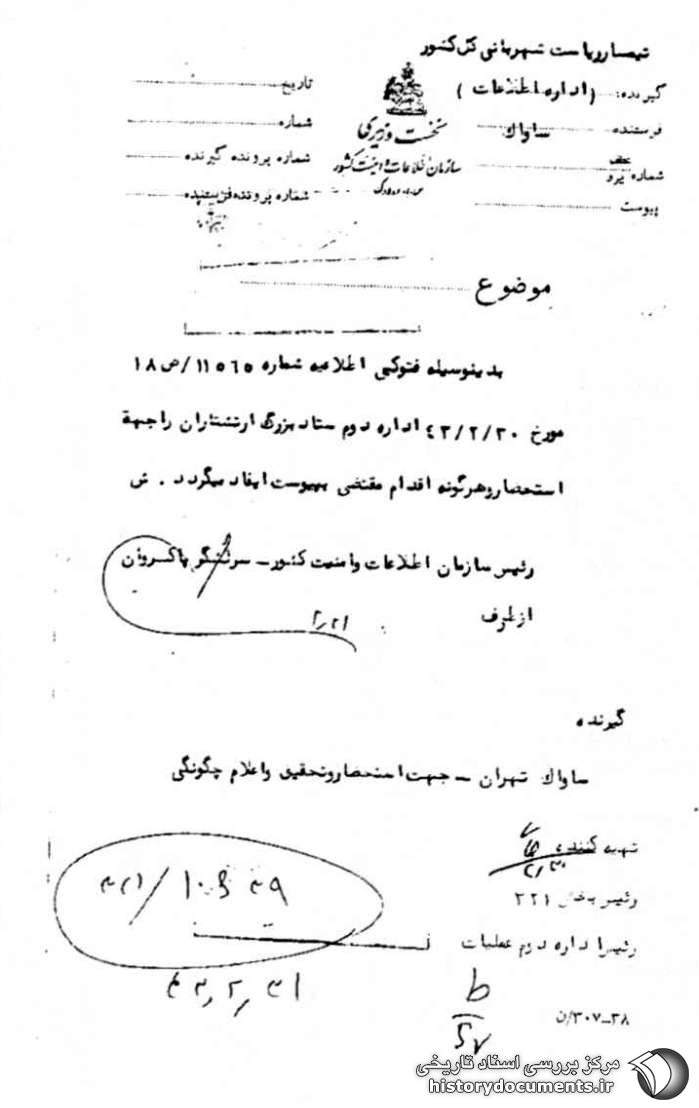 تیمسار ریاست شهربانی کل کشور
گیرنده: (اداره اطلاعات)
فرستنده ساواک
شماره
پیوست
نخست وزیری
سازمان اطلاعات و امنیت کشور
تاریخ
شماره
شماره پرونده گیرنده
شماره پرونده فرستنده
موضوع
بدینوسیله فتوکپی اطلاعیه شماره ۱۱۵۶۵/ص۱۸
مورخ ۴۳/۲/۲۰ اداره دوم ستاد بزرگ ارتشتاران را جهة
استحضار و هرگونه اقدام مقتضی بپیوست ایفاد میگردد. ش
رئیس سازمان اطلاعات و امنیت کشور – سرلشگر پاکروان
از طرف
۲/۲۱
گیرنده
ساواک تهران – جهت استحضار و تحقیق و اعلام چگونگی
تهیه کننده
رئیس بخش ۳۲۱
رئیس اداره دوم عملیات
۳۰۷-۳۸/ن
۴۳/۲/۳۱
مرکز بررسی اسناد تاریخی
historydocuments.ir